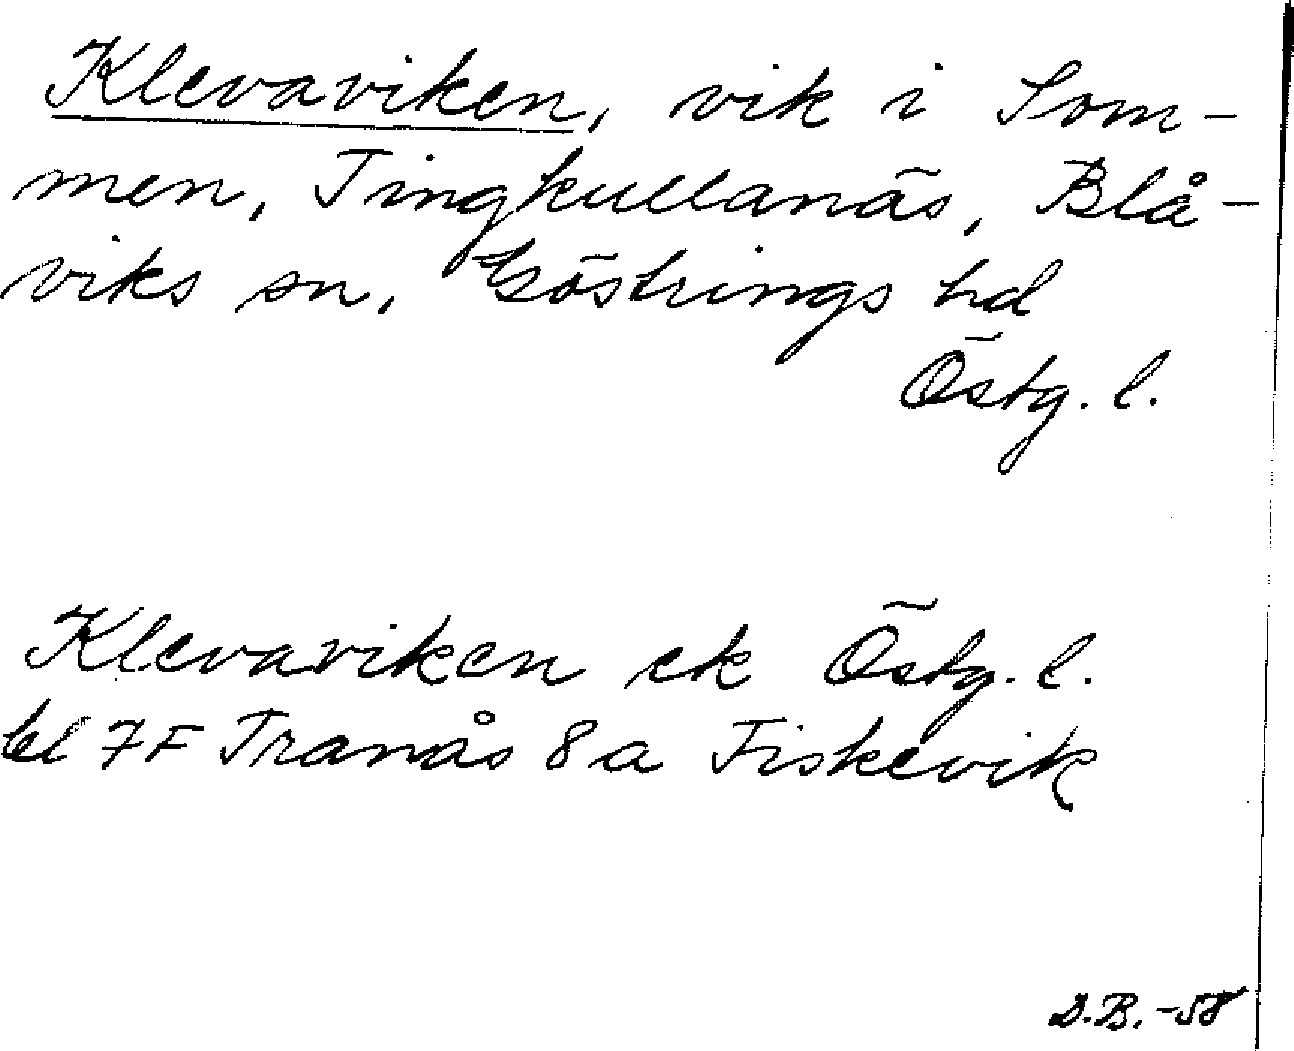 Klevaviken, vik i Som-
men, Tingkullanäs, Blå-
viks sn, Göstrings hd
Östg. l.
Klevaviken ek Östg. l.
bl 7F Tranås 8a Fiskevik
D.B. -58